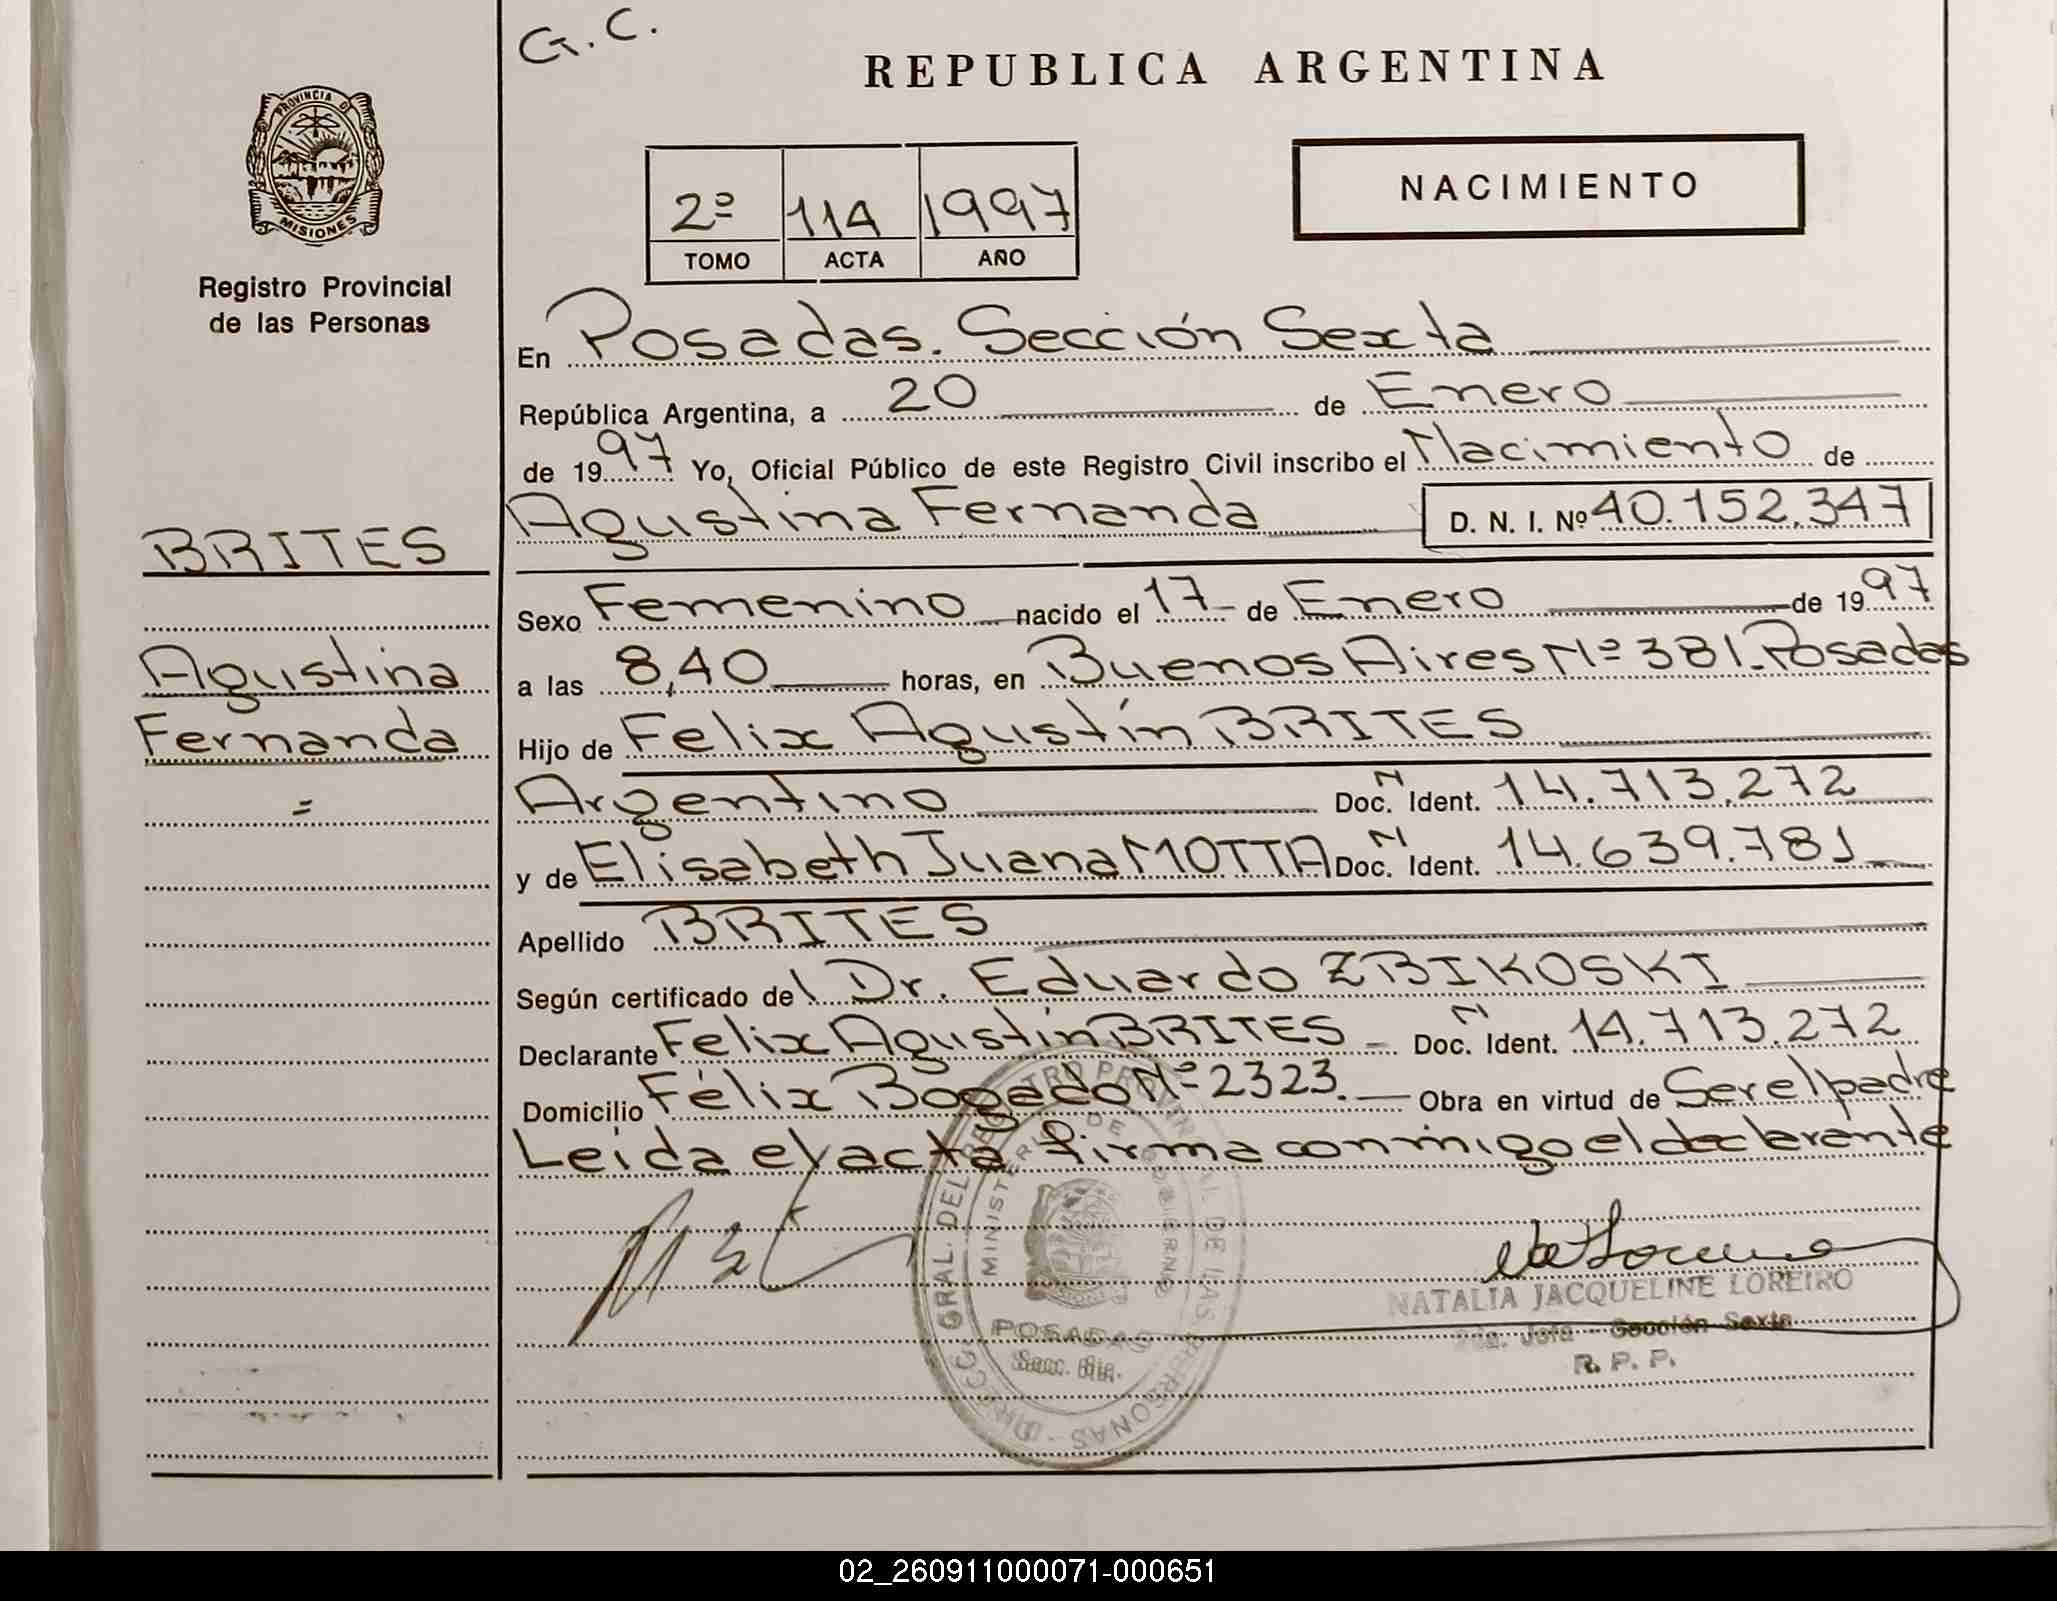 G. C.
REPUBLICA ARGENTINA
PROVINCIA D
MISIONES
Registro Provincial
de las Personas
2º 114 1997
TOMO ACTA AÑO
NACIMIENTO
En Posadas. Sección Sexta
República Argentina, a 20 de Enero
de 1997 Yo, Oficial Público de este Registro Civil inscribo el Nacimiento de
Agustina Fernanda D. N. I. Nº 40.152.347
BRITES
Sexo Femenino nacido el 17 de Enero de 1997
Agustina
a las 8,40 horas, en Buenos Aires Nº 381. Posadas
Fernanda
Hijo de Felix Agustín BRITES
=
Argentino Doc. N Ident. 14.713.272
y de Elisabeth Juana MOTTA Doc. N Ident. 14.639.781
Apellido BRITES
Según certificado del Dr. Eduardo ZBIKOSKI
Declarante Felix Agustín BRITES Doc. N Ident. 14.713.272
Domicilio Félix Bogado Nº 2323. Obra en virtud de Ser el padre
Leída el acta firma conmigo el declarante
DIRECC. GRAL. DEL REGISTRO PROVINCIAL DE LAS PERSONAS
MINISTERIO DE GOBIERNO
POSADAS
Secc. 6ta.
NATALIA JACQUELINE LOREIRO
Jefa - Sección Sexta
R. P. P.
02_260911000071-000651